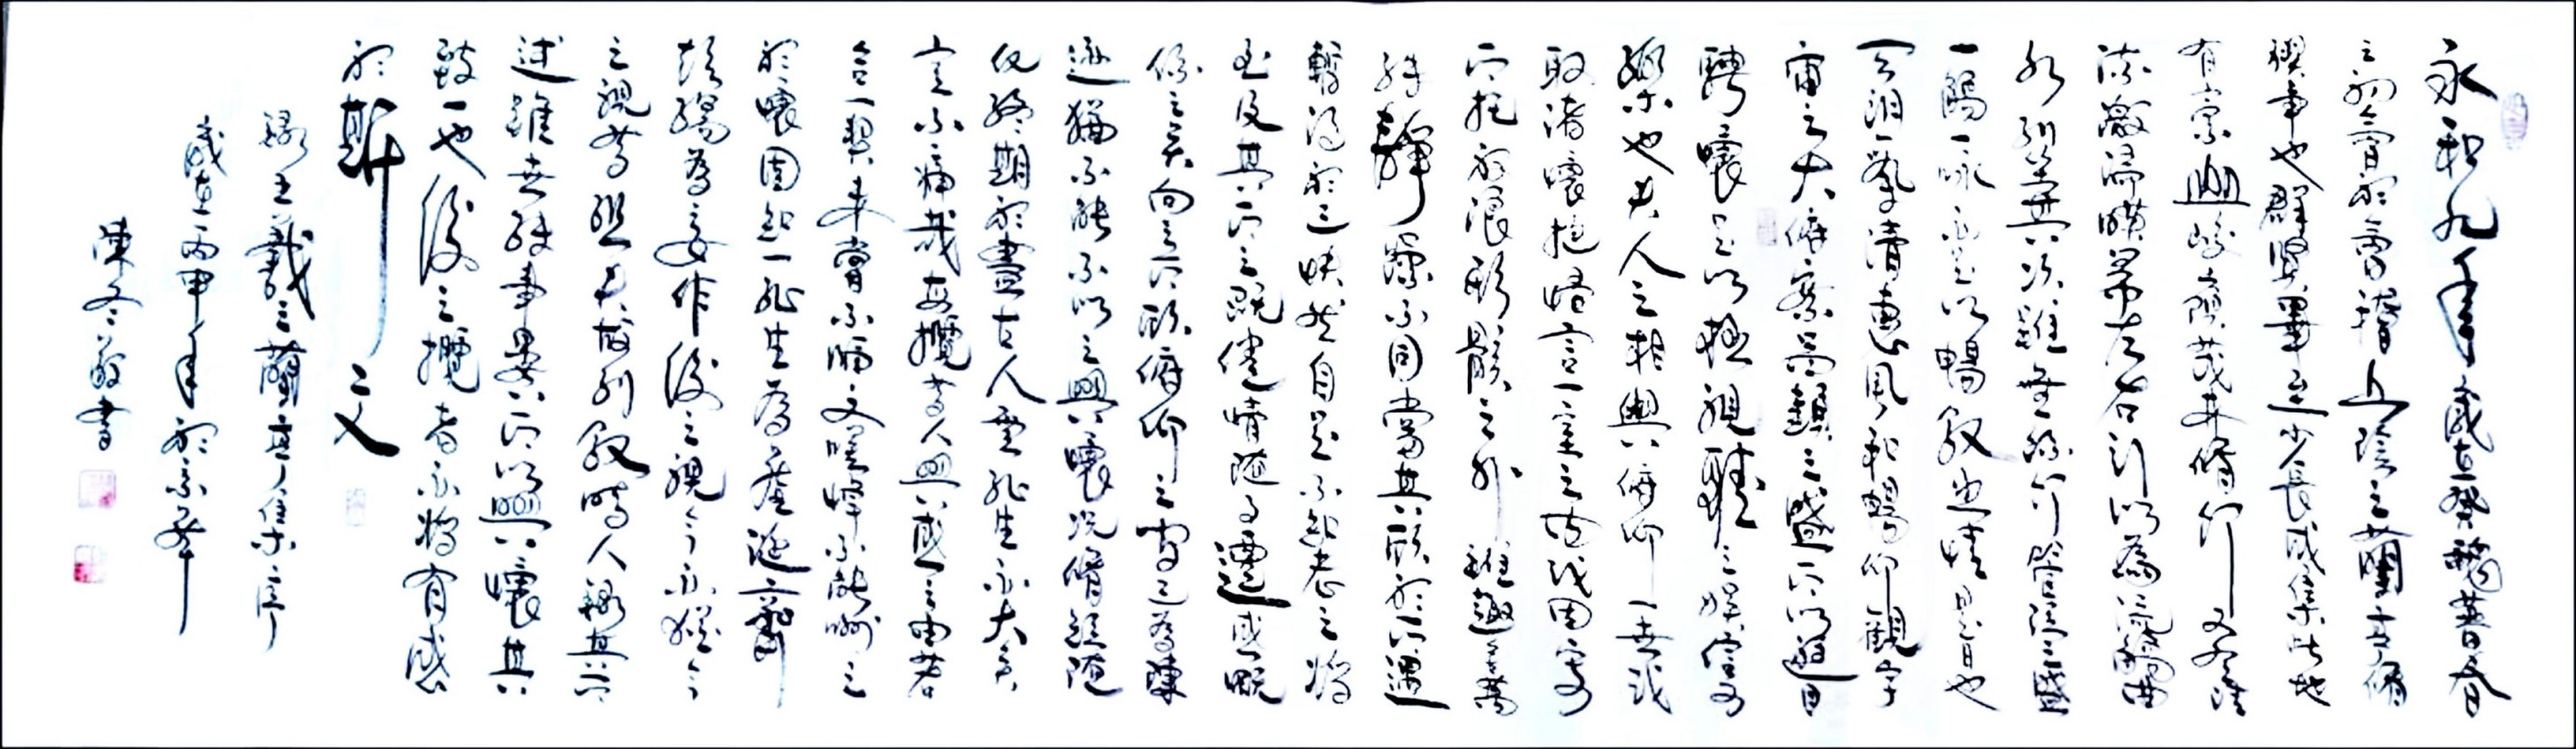 永和九年歲在癸醜暮春
之初會於會稽山陰之蘭亭脩
禊事也群賢畢至少長咸集此地
有崇山峻嶺茂林脩竹又有清
流激湍映帶左右引以為流觴曲
水列坐其次雖無絲竹管弦之盛
一觴一詠亦足以暢敘幽情是日也
天朗氣清惠風和暢仰觀宇
宙之大俯察品類之盛所以遊目
騁懷足以極視聽之娛信可
樂也夫人之相與俯仰一世或
取諸懷抱悟言一室之內或因寄
所托放浪形骸之外雖趣舍萬
殊靜躁不同當其欣於所遇
暫得於己快然自足不知老之將
至及其所之既倦情隨事遷感慨
係之矣向之所欣俯仰之間已為陳
迹猶不能不以之興懷況脩短隨
化終期於盡古人云死生亦大矣
豈不痛哉每攬昔人興感之由若
合一契未嘗不臨文嗟悼不能喻之
於懷固知一死生為虛誕齊
彭殤為妄作後之視今亦猶今
之視昔悲夫故列敘時人錄其所
述雖世殊事異所以興懷其
致一也後之攬者亦將有感
於斯文
錄王羲之蘭亭集序
歲在丙申年於京華
陳冬敬書